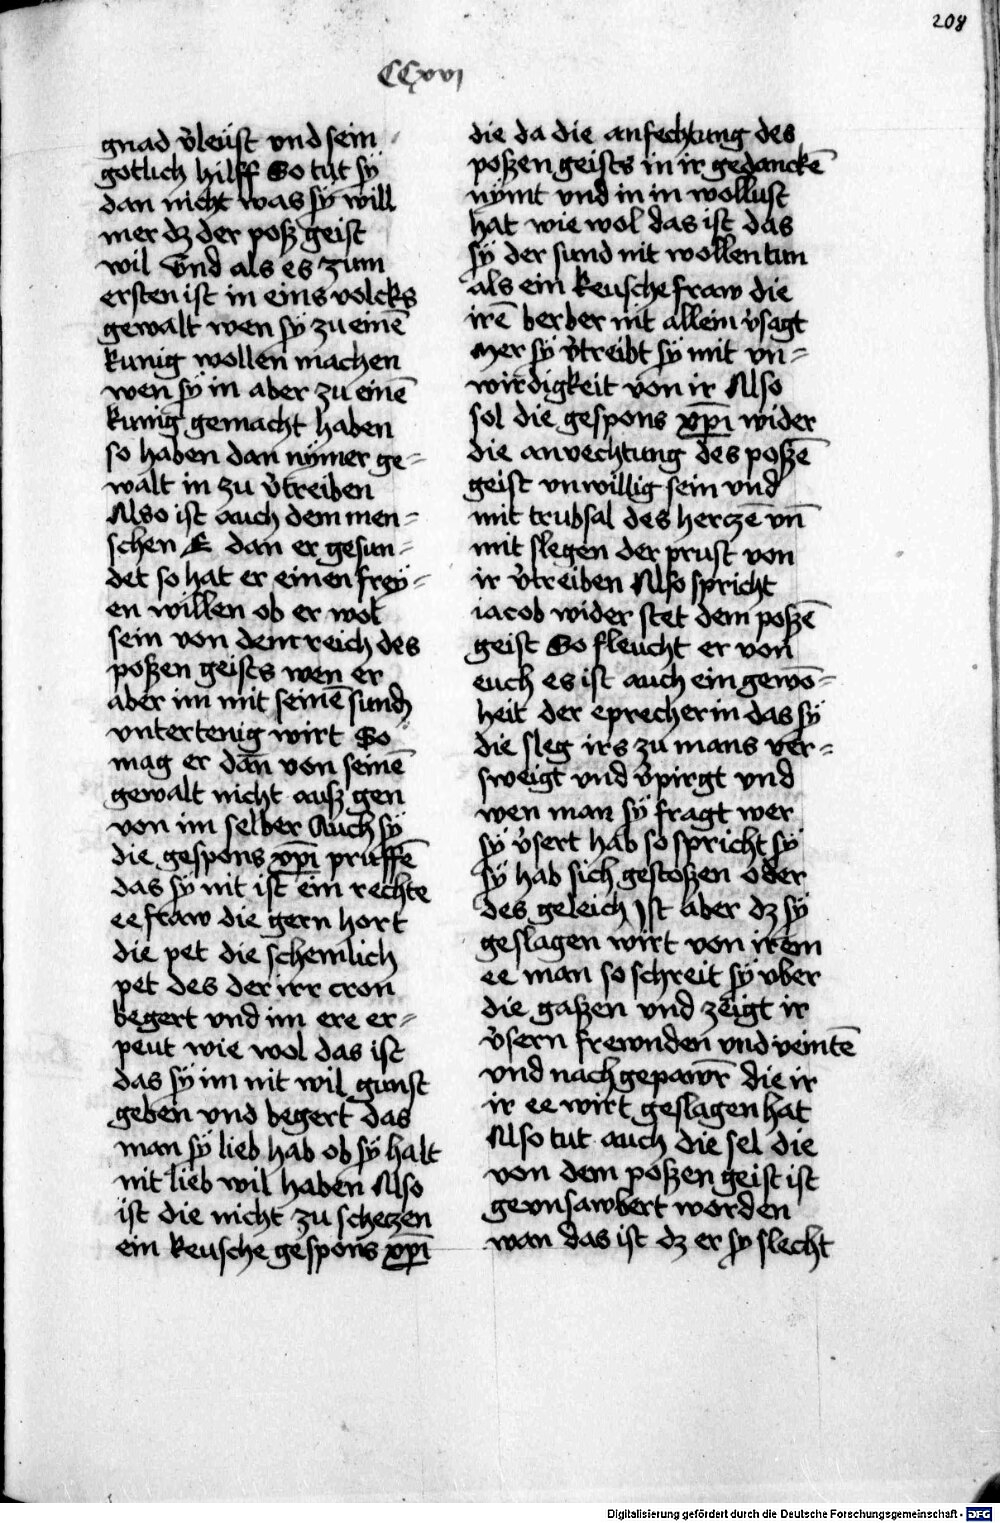 208
CCxvi
gnad v̉leüst vnd sein
gotlich hilff So tut sÿ
dan nicht was sÿ will
mer dz der posz geist
wil Vnd als es zum
ersten ist in eins volcks
gewalt wen sÿ zu einē
kunig wollen machen
wen sÿ in aber zu einē
kunig gemacht haben
so haben dan nÿmer ge=
walt in zu v̉treiben
Also ist auch dem men=
schen E dan er gesun=
det so hat er einen freÿ=
en willen ob er wol
sein von dem reich des
poszen geists wen er
aber im mit seinē sund
vntertenig wirt So
mag er dan von seinē
gewalt nicht ausz gen
von im selber Auch sÿ
die gespons xp̄i pruffē
das sÿ nit ist ein rechte
ee fraw die gern hort
die pet die schemlich
pet des der irr cron
begert vnd im ere er=
peut wie wol das ist
das sÿ im nit wil gunst
geben vnd begert das
man sÿ lieb hab ob sÿ halt
nit lieb wil haben Also
ist die nicht zu schetzen
ein keusche gespons xp̄i
die da die anfechtung des
poszen geists in ir gedanckē
nÿmt vnd in in wollust
hat wie wol das ist das
sÿ der sund nit wollen tun
als ein keusche fraw die
irē berber nit allein v̉sagt
Mer sÿ v̉treibt sÿ mit vn=
wirdigkeit von ir Also
sol die gespons xp̄i wider
die anvechtung des poszē
geist vnwillig sein vnd
mit trubsal des herczē vn̄
mit slegen der prust von
ir v̉treiben Also spricht
iacob wider stet dem poszē
geist So fleucht er von
euch es ist auch ein gewō=
heit der eprecherin das sÿ
die sleg irs zu mans ver=
sweigt vnd v̉pirgt vnd
wen man sÿ fragt wer
sÿ v̉sert hab so spricht sÿ
sÿ hab sich gestoszen oder
des geleich Ist aber dz sÿ
geslagen wirt von irem
ee man so schreit sÿ vber
die gaszen vnd zeigt ir
v̉sern frewnden vnd veintē
vnd nachgepawr̄ die ir
ir ee wirt geslagen hat
Also tut auch die sel die
von dem poszen geist ist
gevnsawbert worden
wan das ist dz er sy slecht
Digitalisierung gefördert durch die Deutsche Forschungsgemeinschaft - DFG